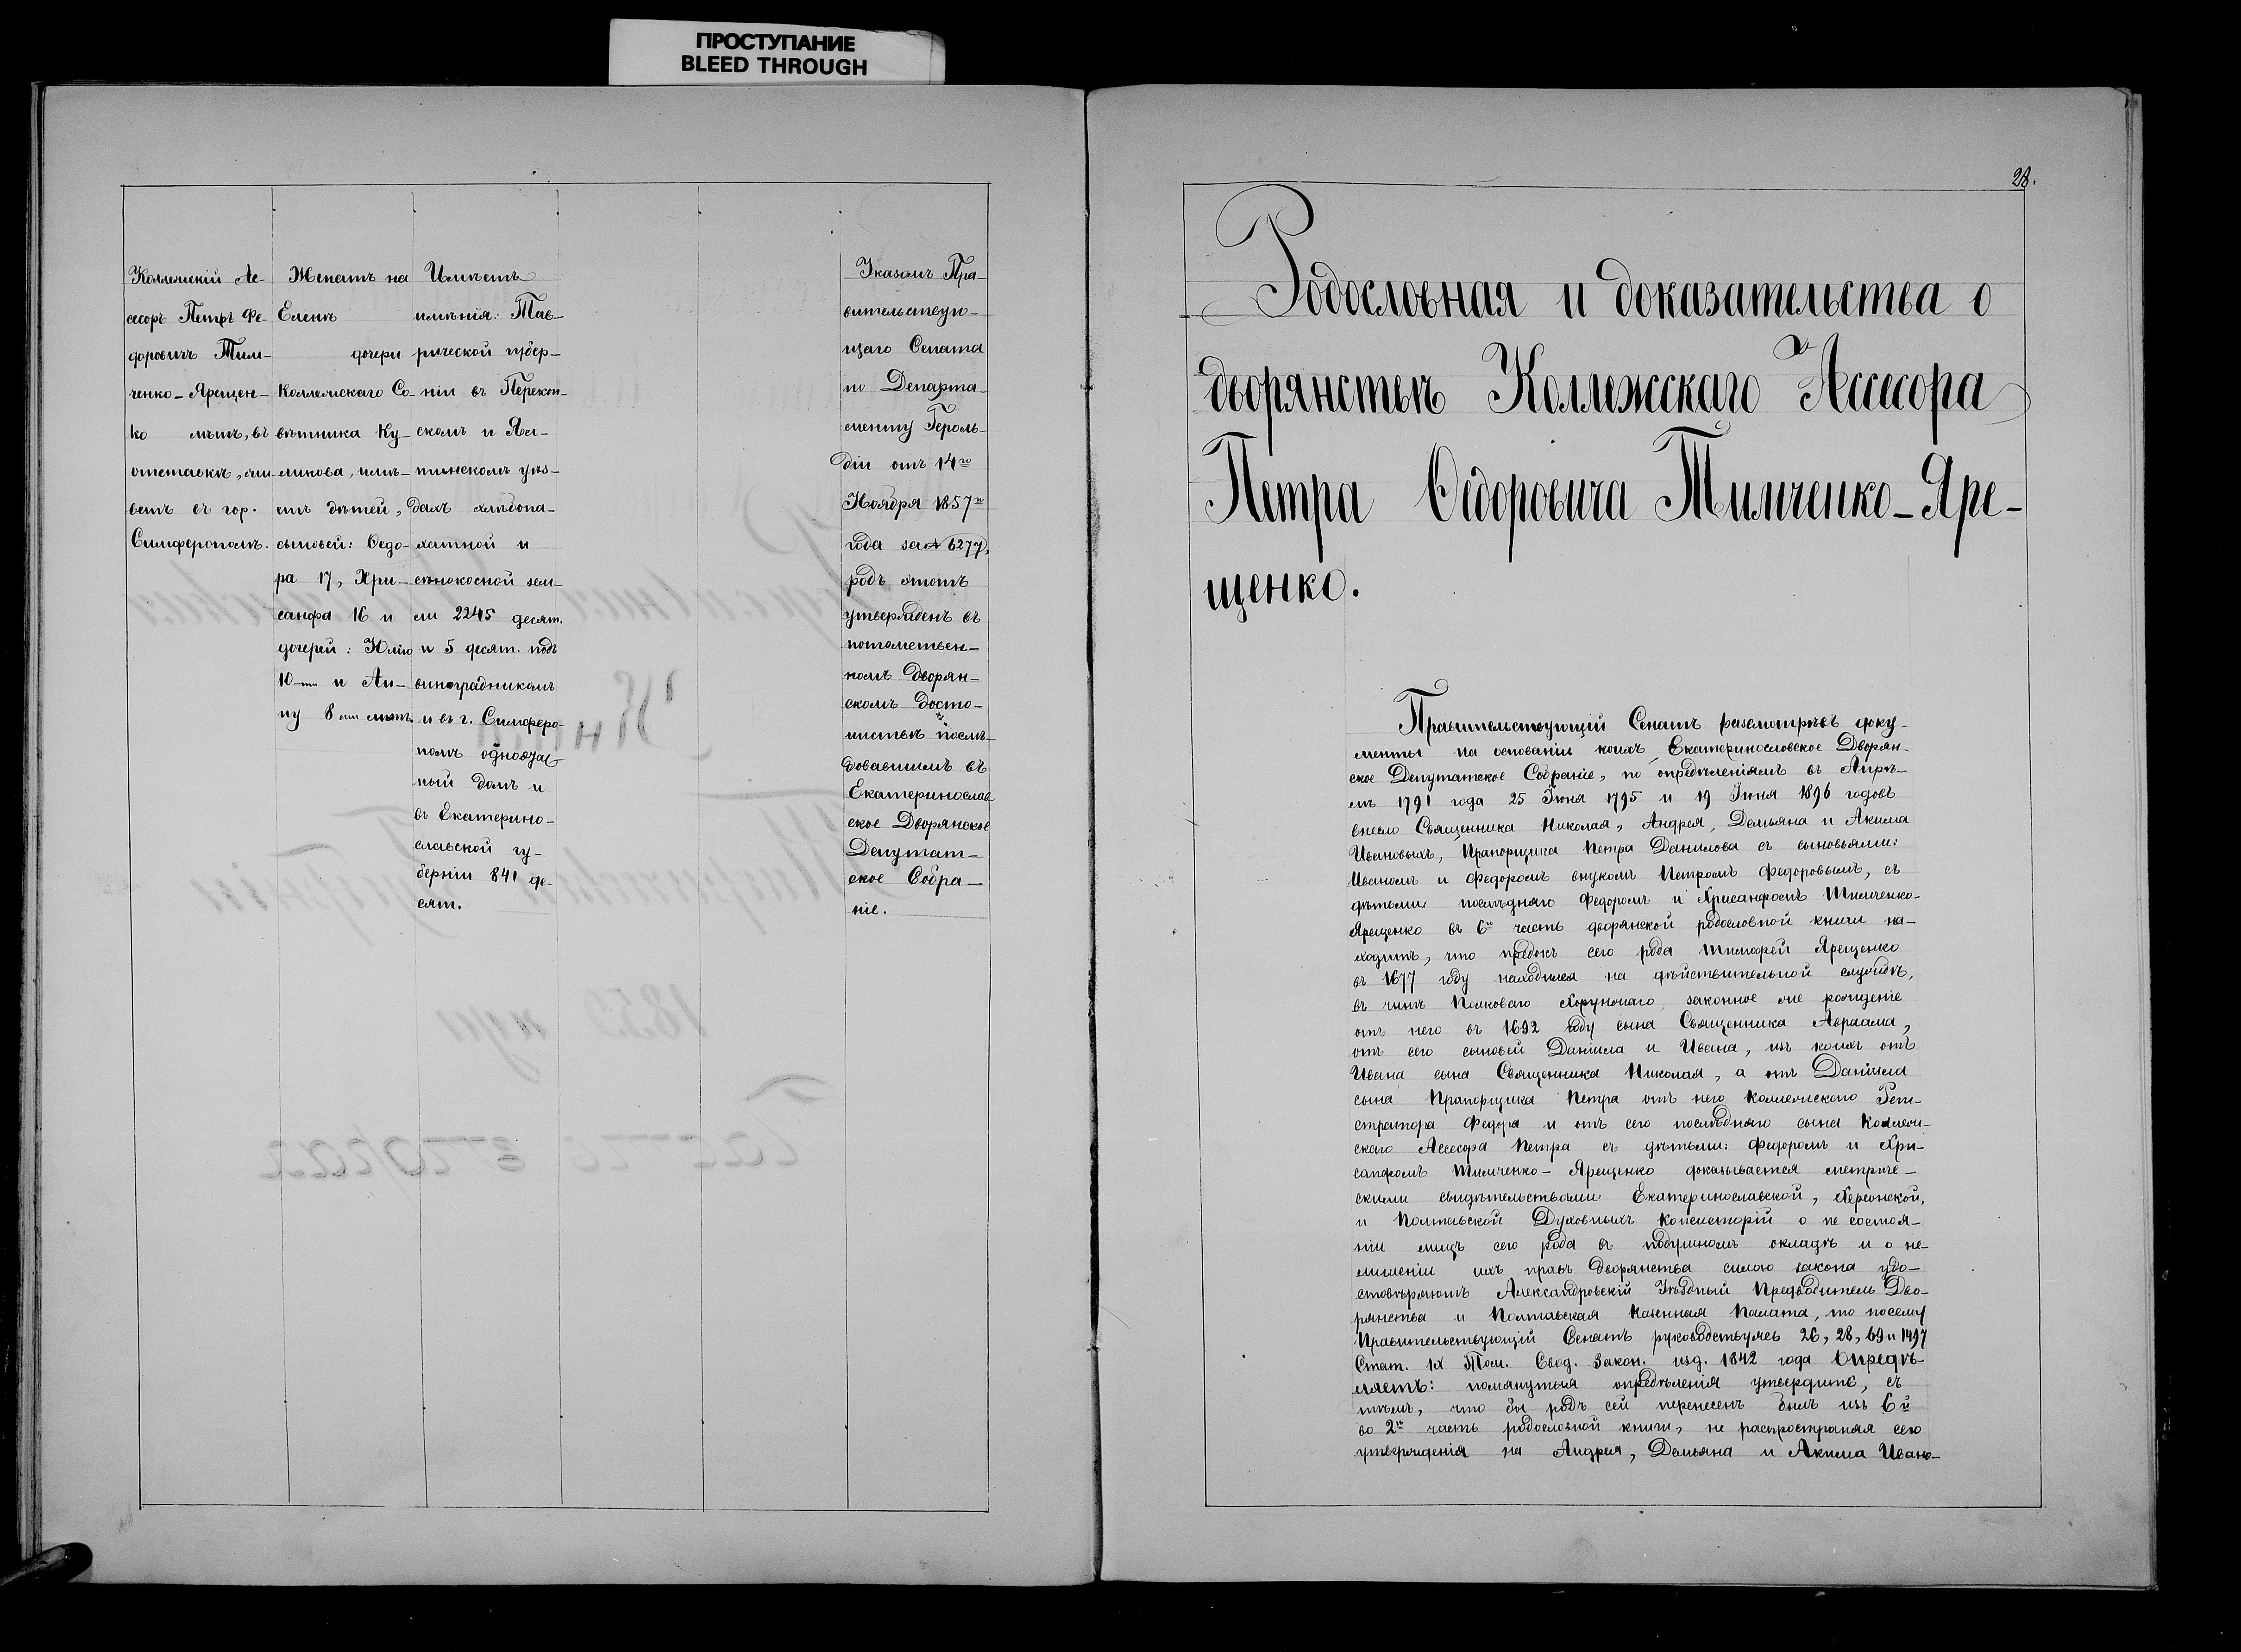 ПРОСТУПАНИЕ
BLEED THROUGH
Коллежскій Ас-
сесоръ Петръ Ѳе-
доровичъ Тим-
ченко-Ярещен-
ко лѣтъ, въ
отставкѣ, жи-
ветъ въ гор.
Симферополѣ.
Женатъ на
Еленѣ
дочери
Коллежскаго Со-
вѣтника Ку-
ликова, имѣ-
етъ дѣтей,
сыновей: Ѳедо-
ра 17, Хри-
санфа 16 и
дочерей: Юлію
10-ти и Ан-
ну 8 ми лѣтъ.
Имѣетъ
имѣнія: Тав-
рической губер-
ніи въ Перекоп-
скомъ и Ял-
тинскомъ уѣз-
дахъ хлѣбопа-
хатной и
сѣнокосной зем-
ли 2245 десят.
и 5 десят. подъ
виноградникомъ
и въ г. Симферо-
полѣ одноэтаж-
ный домъ и
въ Екатерино-
славской гу-
берніи 841 де-
сят.
Указомъ Пра-
вительствую-
щаго Сената
по Департа-
менту Героль-
діи отъ 14го
Ноября 1857го
года за № 6277,
родъ этотъ
утвержденъ въ
потомствен-
номъ дворян-
скомъ досто-
инствѣ послѣ-
довавшимъ въ
Екатеринослав
ское Дворянское
Депутат-
ское Собра-
ніе.
28.
Родословная и доказательства о
дворянствѣ Коллежскаго Ассесора
Петра Ѳедоровича Тимченко-Яре-
щенко.
Правительствующій Сенатъ разсмотрѣвъ доку-
менты на основаніи коихъ Екатеринославское Дворян-
ское Депутатское Собраніе, по опредѣленіямъ въ Апрѣ-
лѣ 1791 года 25 Іюня 1795 и 19 Іюня 1896 годовъ
внесло Священника Николая, Андрея, Демьяна и Акима
Ивановыхъ, Прапорщика Петра Данилова съ сыновьями:
Иваномъ и Федоромъ внукомъ Петромъ Федоровымъ, съ
дѣтьми послѣдняго Федоромъ и Хрисанфомъ Тимченко-
Ярещенко въ 6ю часть дворянской родословной книги на-
ходитъ, что предокъ сего рода Тимофей Ярещенко
въ 1677 году находился на дѣйствительной службѣ,
въ чинѣ Полковаго Хорунжаго, законное же рожденіе
отъ него въ 1692 году сына Священника Авраама,
отъ сего сыновей Даніила и Ивана, изъ коихъ отъ
Ивана сына Священника Николая, а отъ Даніила
сына Прапорщика Петра отъ него Коллежскаго Реги-
стратора Федора и отъ сего послѣдняго сына Коллеж-
скаго Ассесора Петра съ дѣтьми: Федоромъ и Хри-
санфомъ Тимченко-Ярещенко доказывается метриче-
скими свидѣтельствами Екатеринославской, Херсонской,
и Полтавской Духовныхъ Консисторій о не состоя-
ніи лицъ сего рода въ подушномъ окладѣ и о не-
лишеніи ихъ правъ Дворянства силою закона удо-
стовѣряютъ Александровскій Уѣздный Предводитель Дво-
рянства и Полтавская Казенная Палата, то посему
Правительствующій Сенатъ руководствуясь 26, 28, 69 и 1497
Стат. IX Том. Свод. Закон. изд. 1842 года Опредѣ-
ляетъ: помянутыя опредѣленія утвердить, съ
тѣмъ, что бы родъ сей перенесенъ былъ изъ 6й
во 2ю часть родословной книги, не распространяя сего
утвержденія на Андрея, Демьяна и Акима Ивано-